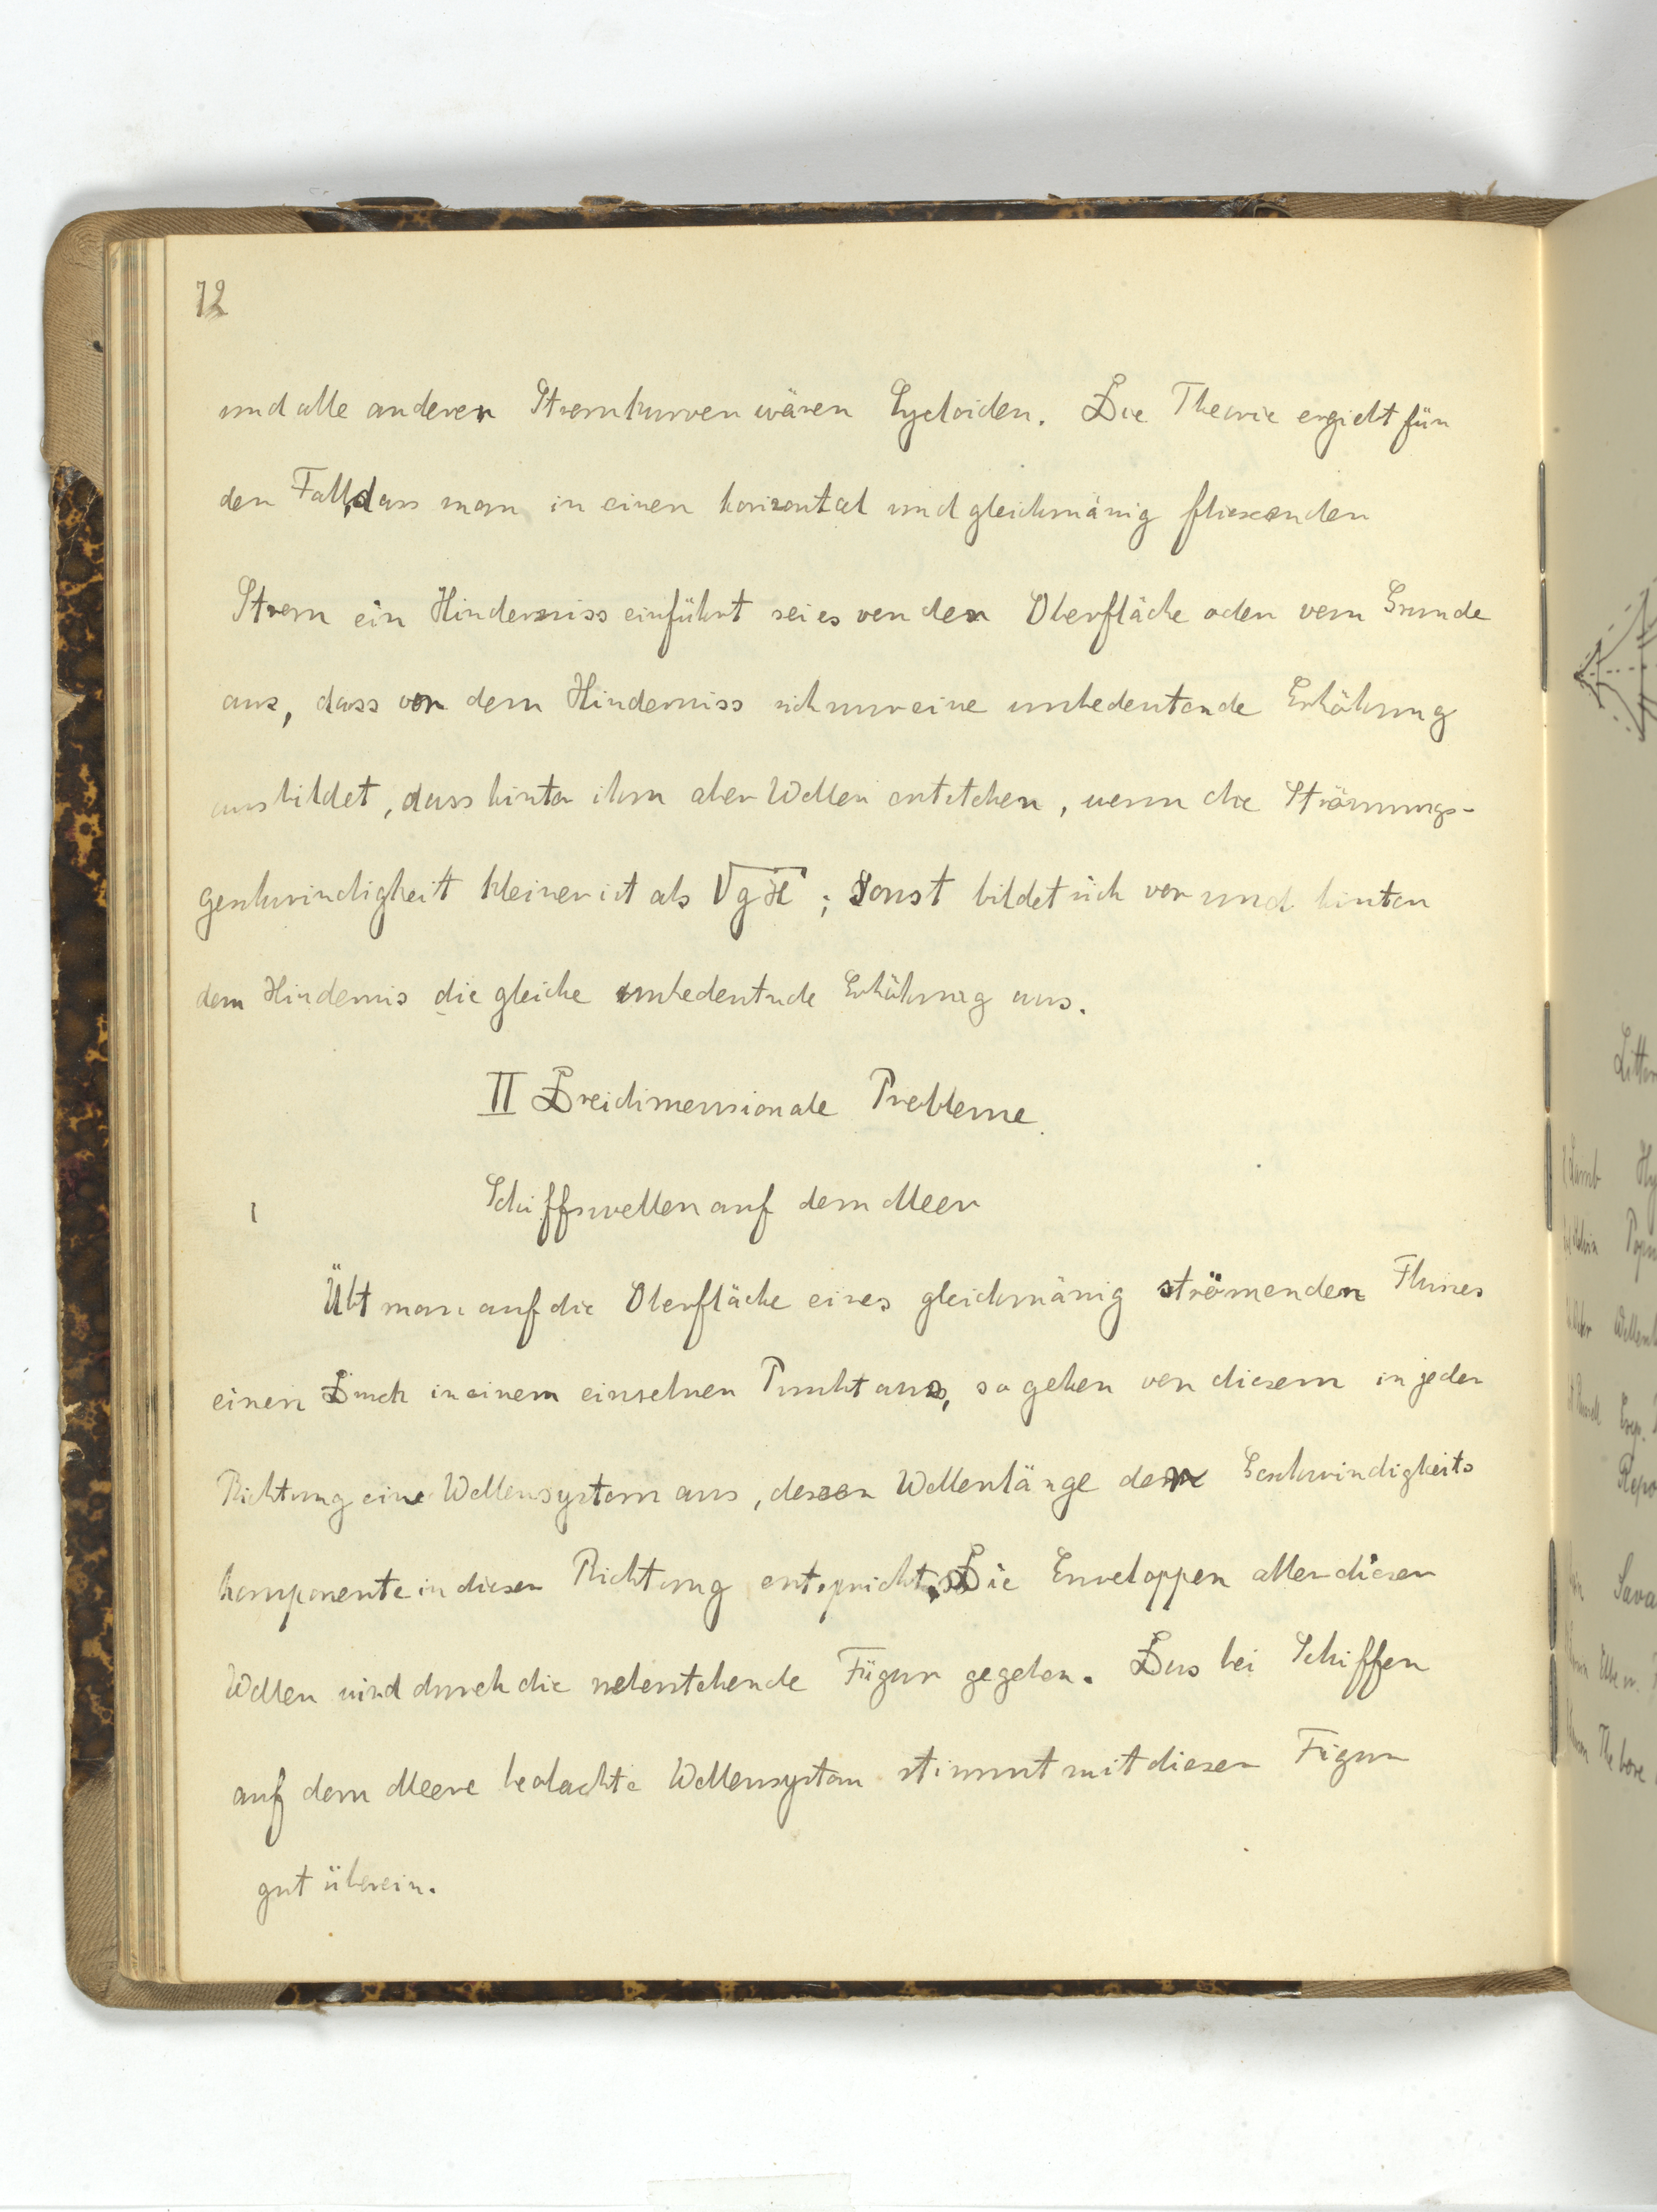 72
und alle anderen Stromkurven wären Cycloiden. Die Theorie ergiebt für
den Fall, dass man in einen horizontal und gleichmässig fliessenden
Strom ein Hinderniss einführt sei es von der Oberfläche oder vom Grunde
aus, dass vor dem Hinderniss sich nur eine unbedeutende Erhöhung
ausbildet, dass hinter ihm aber Wellen entstehen, wenn die Strömungs-
geschwindigkeit kleiner ist als √gH ; sonst bildet sich vor und hinter
dem Hindernis die gleiche unbedeutnde Erhöhung aus.
II Dreidimensionale Probleme.
1 Schiffswellen auf dem Meer
Übt man auf die Oberfläche eines gleichmässig strömenden Flusses
einen Druck in einem einzelnen Punkt aus, so gehen von diesem in jeder
Richtung eine Wellensystem aus, dessen Wellenlänge der Geschwindigkeits
komponente in dieser Richtung entspricht. Die Enveloppen aller dieser
Wellen wird durch die nebenstehende Figur gegeben. Das bei Schiffen
auf dem Meere beobachte Wellensystem stimmt mit dieser Figur
gut überein.
Lamb
Repo
Sava
The bore